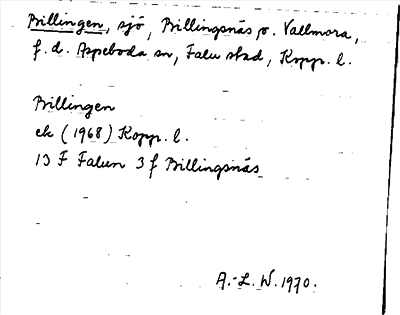 Billingen, sjö, Billingsnäs o. Vallmora,
f. d. Aspeboda sn, Falu stad, Kopp. l.
Billingen
ek (1968) Kopp. l.
13 F Falun 3 f Billingsnäs
A.-L. W. 1970.